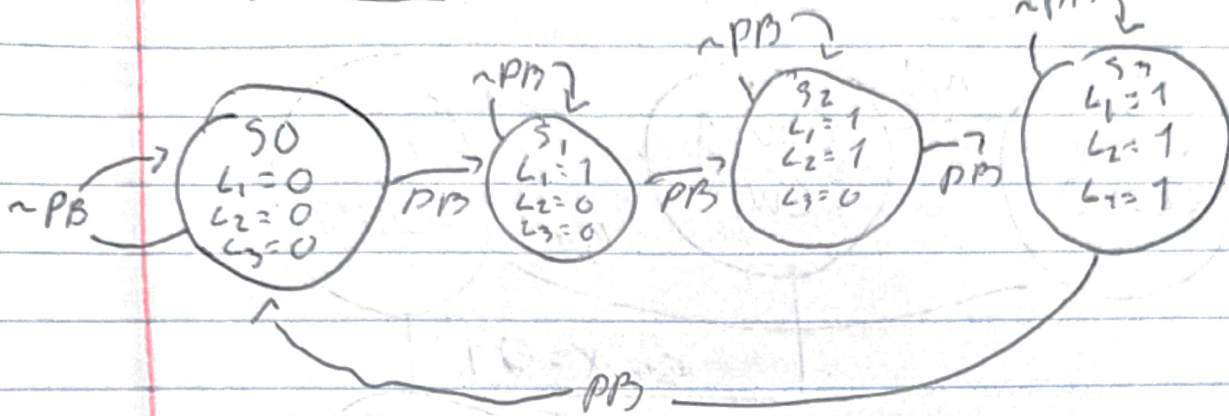 ~PB
S0
L₁=0
L₂=0
L₃=0
PB
~PB
S₁
L₁=1
L₂=0
L₃=0
PB
~PB
S2
L₁=1
L₂=1
L₃=0
PB
~PB
S3
L₁=1
L₂=1
L₃=1
PB